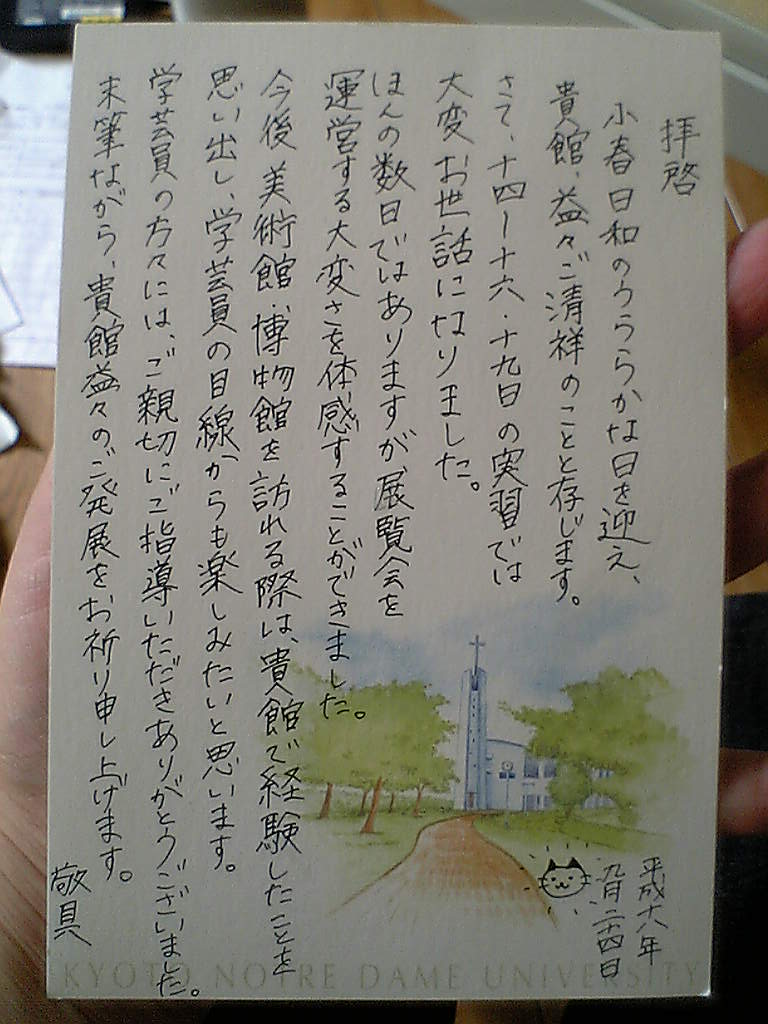 拝啓
小春日和のうららかな日を迎え、
貴館、益々ご清祥のことと存じます。
さて、十四〜十六・十九日の実習では
大変お世話になりました。
ほんの数日ではありますが、展覧会を
運営する大変さを体感することができました。
今後美術館・博物館を訪れる際は、貴館で経験したことを
思い出し、学芸員の目線からも楽しみたいと思います。
学芸員の方々には、ご親切にご指導いただきありがとうございました。
末筆ながら、貴館益々のご発展をお祈り申し上げます。
敬具
平成十八年
九月二十四日
KYOTO NOTRE DAME UNIVERSITY